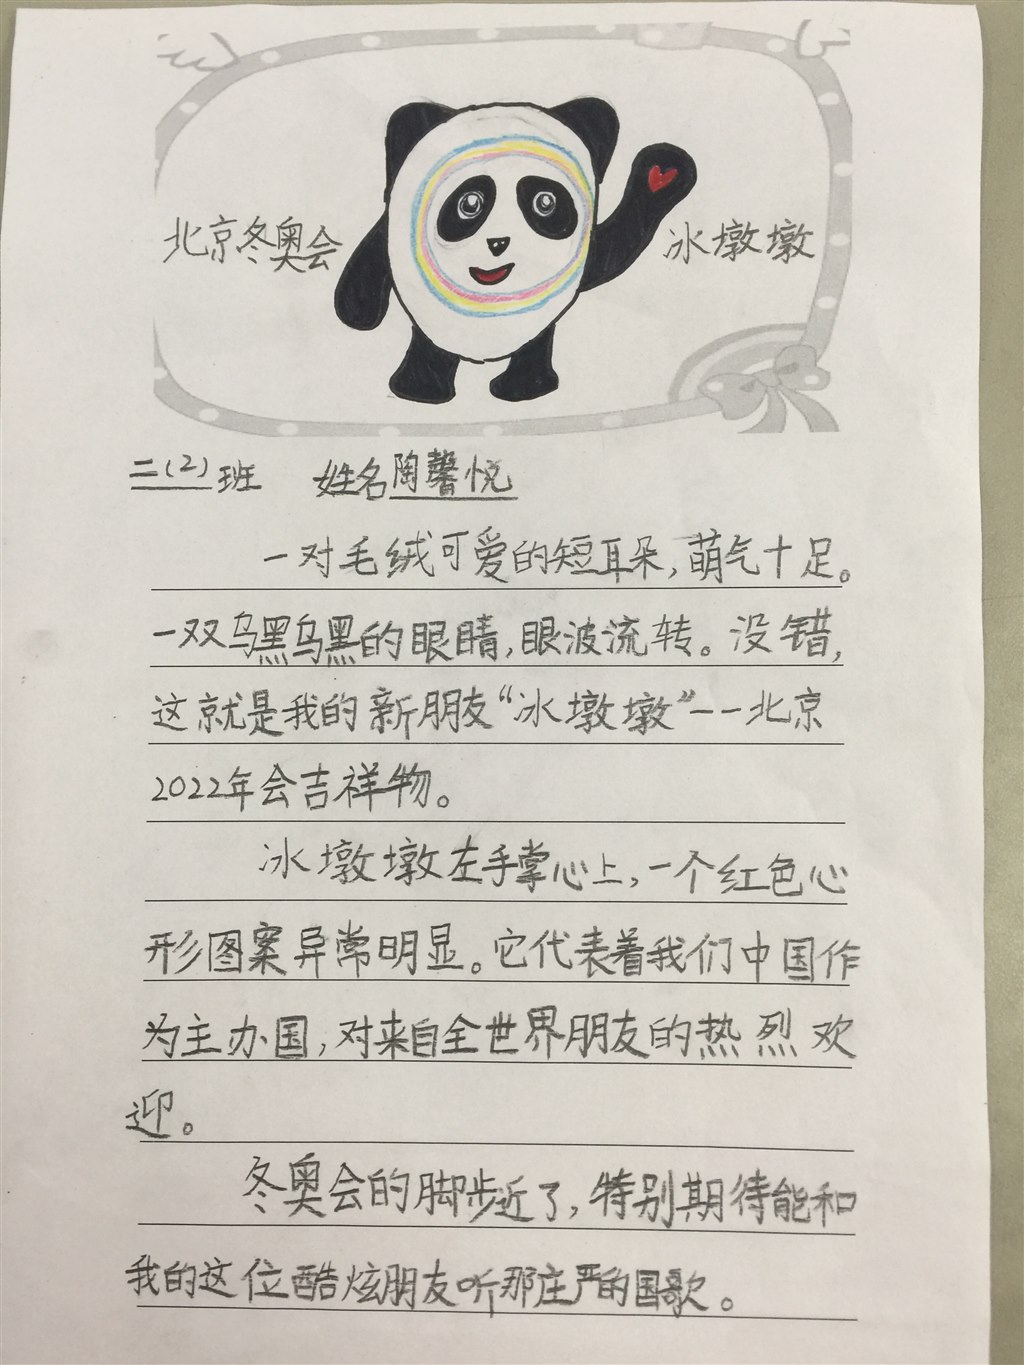 北京冬奥会
冰墩墩
二(2)班 姓名陶馨悦
一对毛绒可爱的短耳朵,萌气十足。
一双乌黑乌黑的眼睛,眼波流转。没错,
这就是我的新朋友“冰墩墩”——北京
2022年会吉祥物。
冰墩墩左手掌心上,一个红色心
形图案异常明显。它代表着我们中国作
为主办国,对来自全世界朋友的热烈欢
迎。
冬奥会的脚步近了,特别期待能和
我的这位酷炫朋友听那庄严的国歌。